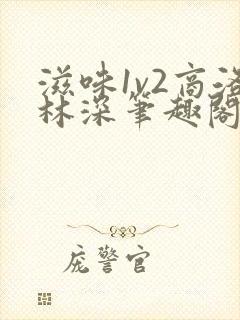 滋味1v2高洛
林深笔趣阁
庞警官